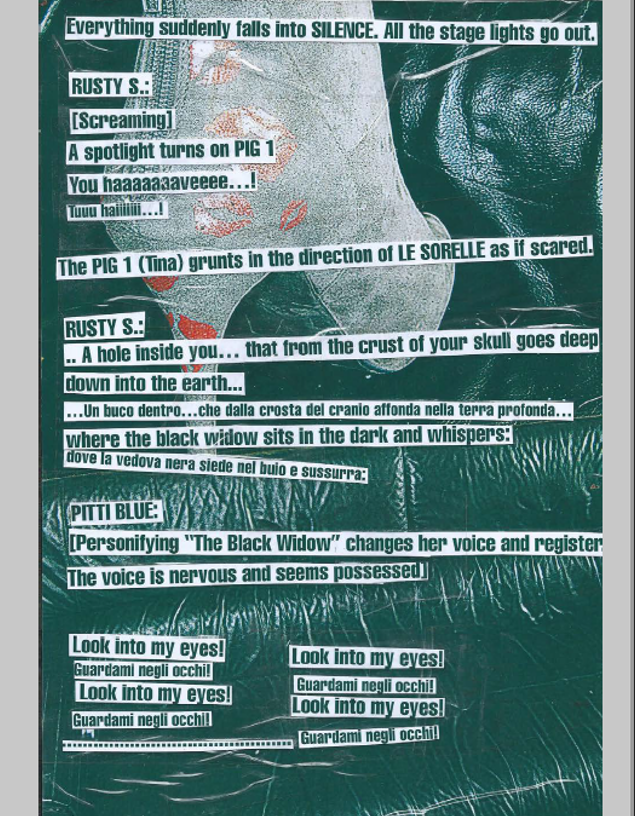 Everything suddenly falls into SILENCE. All the stage lights go out.
RUSTY S.:
[Screaming]
A spotlight turns on PIG 1
You haaaaaaaveeee...!
Tuuu haiiiiii...!
The PIG 1 (Tina) grunts in the direction of LE SORELLE as if scared.
RUSTY S.:
.. A hole inside you... that from the crust of your skull goes deep
down into the earth...
...Un buco dentro...che dalla crosta del cranio affonda nella terra profonda...
where the black widow sits in the dark and whispers:
dove la vedova nera siede nel buio e sussurra:
PITTI BLUE:
[Personifying “The Black Widow” changes her voice and register.
The voice is nervous and seems possessed]
Look into my eyes!
Guardami negli occhi!
Look into my eyes!
Guardami negli occhi!
Look into my eyes!
Guardami negli occhi!
Look into my eyes!
Guardami negli occhi!